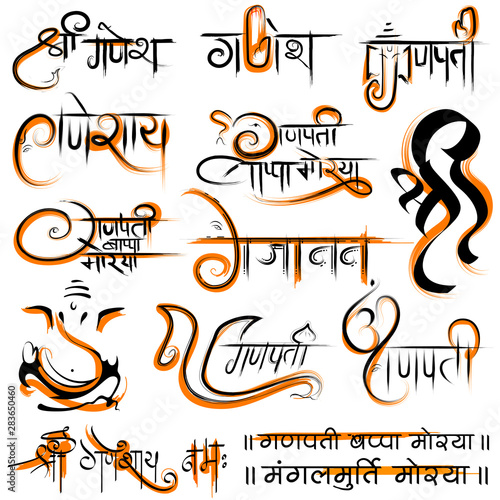 श्री गणेश
गणेश
गणपती
गणेशाय
गणपती
बाप्पा मोरया
श्री
गणपती
बाप्पा
मोरया
गजानन
गणपती
गणपती
श्री गणेशाय नमः
॥ गणपती बप्पा मोरया ॥
॥ मंगलमुर्ति मोरया ॥
Adobe Stock | #283650460